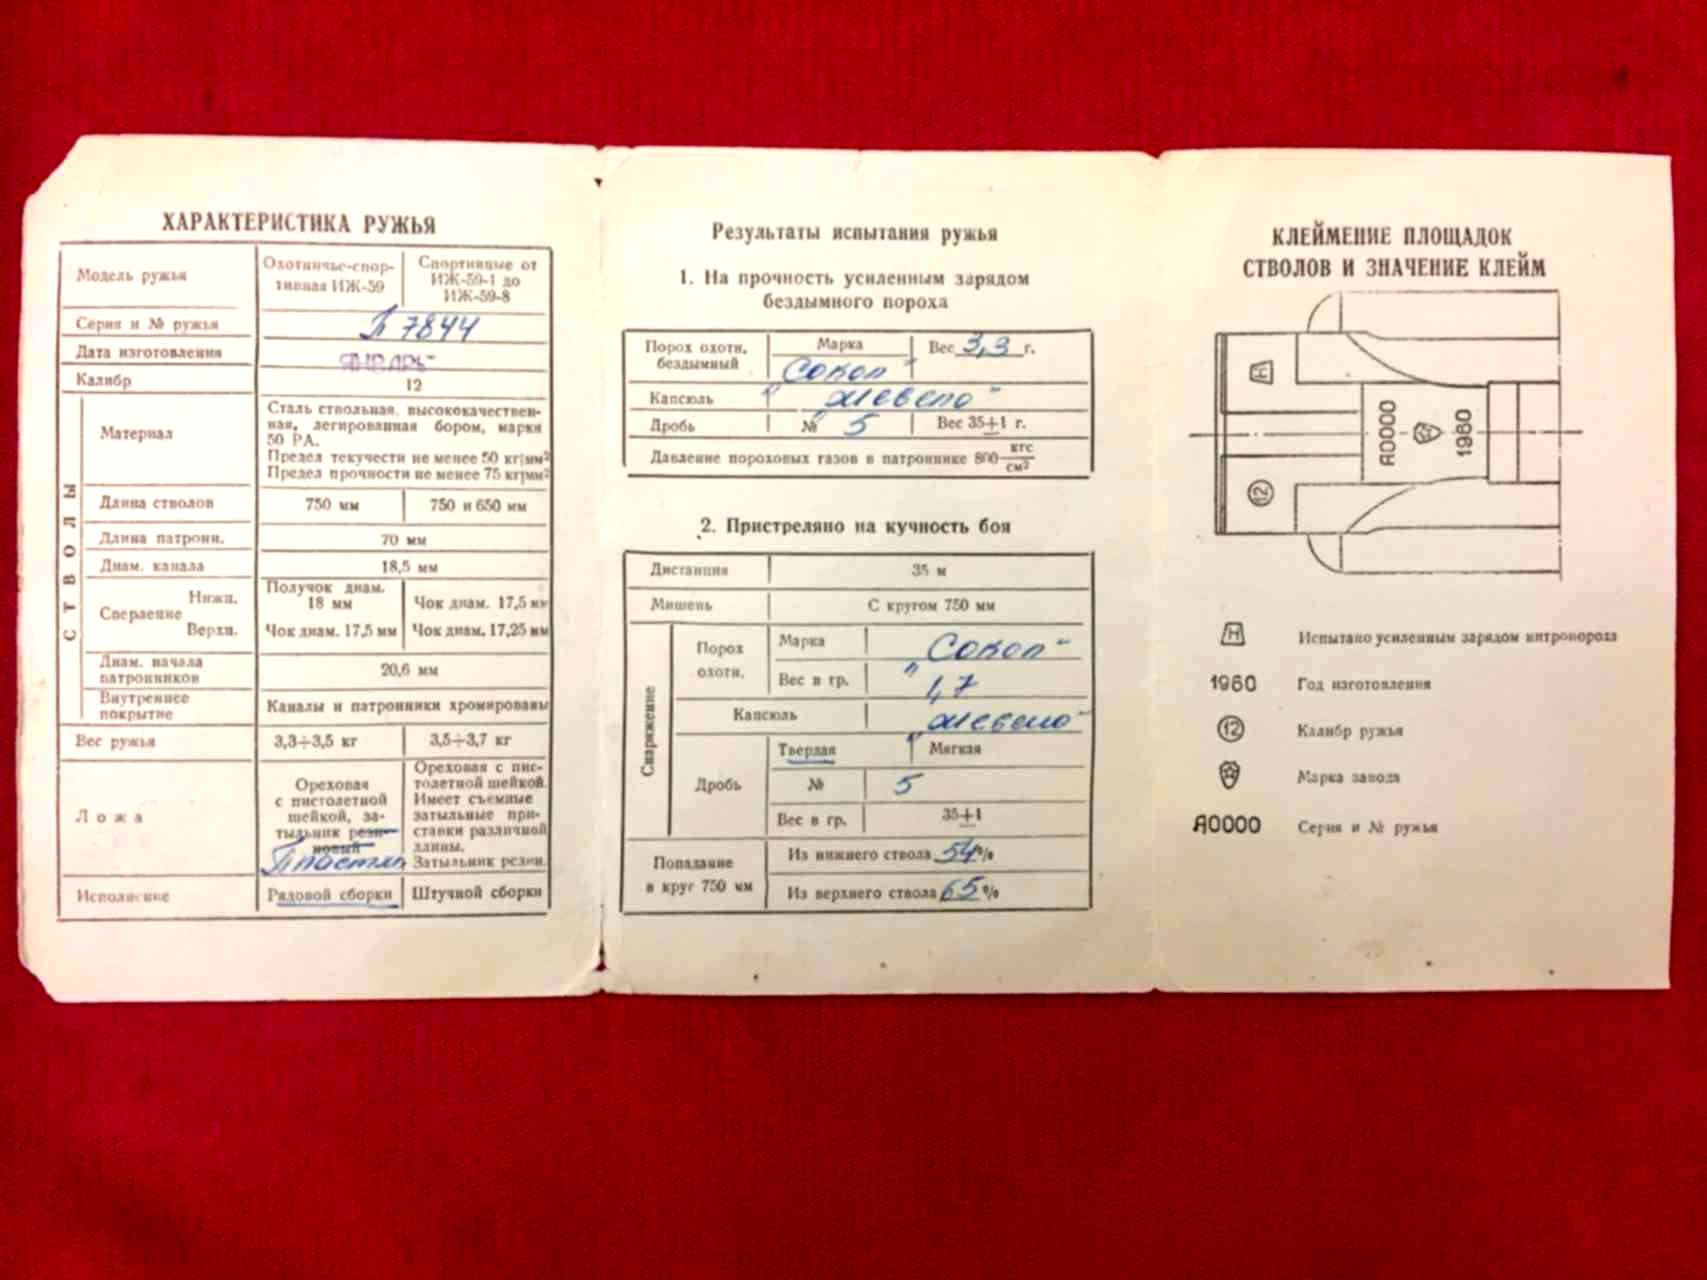 ХАРАКТЕРИСТИКА РУЖЬЯ
Модель ружья
Охотничье-спор-
тивная ИЖ-59
Спортивные от
ИЖ-59-1 до
ИЖ-59-8
Серия и № ружья
7844
Дата изготовления
ЯНВАРЬ
Калибр
12
СТВОЛЫ
Материал
Сталь ствольная, высококачествен-
ная, легированная бором, марки
50 РА.
Предел текучести не менее 50 кг/мм²
Предел прочности не менее 75 кг/мм²
Длина стволов
750 мм
750 и 650 мм
Длина патронн.
70 мм
Диам. канала
18,5 мм
Сверление
Нижн.
Получок диам.
18 мм
Чок диам. 17,5 мм
Верхн.
Чок диам. 17,5 мм
Чок диам. 17,25 мм
Диам. начала
патронников
20,6 мм
Внутреннее
покрытие
Каналы и патронники хромированы
Вес ружья
3,3÷3,5 кг
3,5÷3,7 кг
Ложа
Ореховая
с пистолетной
шейкой, за-
тыльник рези-
новый
Пластм
Ореховая с пис-
толетной шейкой.
Имеет съемные
затыльные при-
ставки различной
длины.
Затыльник резин.
Исполнение
Рядовой сборки
Штучной сборки
Результаты испытания ружья
1. На прочность усиленным зарядом
бездымного пороха
Порох охотн.
бездымный
Марка
"Сокол"
Вес 3,3 г.
Капсюль
"Жевело"
Дробь
№ 5
Вес 35±1 г.
Давление пороховых газов в патроннике 800 кгс/см²
2. Пристреляно на кучность боя
Дистанция
35 м
Мишень
С кругом 750 мм
Снаряжение
Порох
охотн.
Марка
"Сокол"
Вес в гр.
1,7
Капсюль
"Жевело"
Дробь
Твердая
Мягкая
№
5
Вес в гр.
35±1
Попадание
в круг 750 мм
Из нижнего ствола 54%
Из верхнего ствола 65%
КЛЕЙМЕНИЕ ПЛОЩАДОК
СТВОЛОВ И ЗНАЧЕНИЕ КЛЕЙМ
Н
А0000
1960
12
Н Испытано усиленным зарядом нитропороха
1960 Год изготовления
12 Калибр ружья
Марка завода
А0000 Серия и № ружья